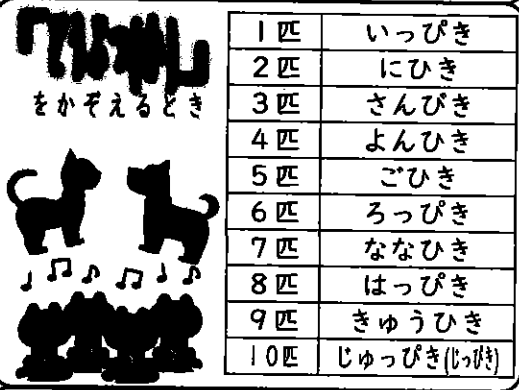 をかぞえるとき
1匹 いっぴき
2匹 にひき
3匹 さんびき
4匹 よんひき
5匹 ごひき
6匹 ろっぴき
7匹 ななひき
8匹 はっぴき
9匹 きゅうひき
10匹 じゅっぴき(じっぴき)